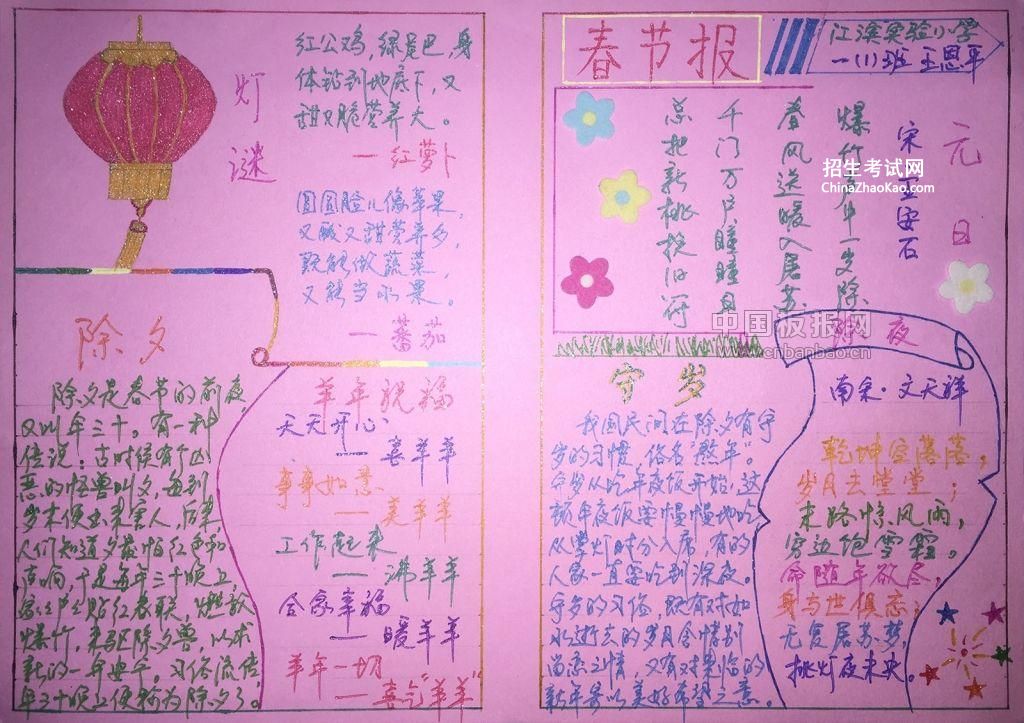 灯谜
红公鸡,绿尾巴,身
体钻到地底下,又
甜又脆营养大。
—红萝卜
圆圆脸儿像苹果,
又酸又甜营养多,
既能做蔬菜,
又能当水果。
—蕃茄
除夕
除夕是春节的前夜,
又叫年三十。有一种
传说:古时候有个凶
恶的怪兽叫夕,每到
岁末便出来害人,后来
人们知道夕最怕红色和
声响,于是每年三十晚上,
家家户户贴红春联,燃放
爆竹,来驱除夕兽,以求
新的一年安宁。习俗流传
年三十晚上便称为除夕了。
羊年祝福
天天开心
——喜羊羊
事事如意
——美羊羊
工作起来
——沸羊羊
合家幸福
——暖羊羊
羊年一切
——喜气"羊羊"
春节报
江滨实验小学
一(1)班 王恩平
元日
宋 王安石
爆竹声中一岁除
春风送暖入屠苏
千门万户曈曈日
总把新桃换旧符
招生考试网
ChinaZhaoKao.com
中国板报网
www.cnbanbao.cn
守岁
我国民间在除夕有守
岁的习惯,俗名"熬年"。
守岁从吃年夜饭开始,这
顿年夜饭要慢慢地吃
从掌灯时分入席,有的
人家一直要吃到深夜。
守岁的习俗,既有对如
水逝去的岁月含惜别
留恋之情,又有对来临的
新年寄以美好希望之意。
除夜
南宋·文天祥
乾坤空落落,
岁月去堂堂;
末路惊风雨,
穷边饱雪霜。
命随年欲尽,
身与世俱忘;
无复屠苏梦,
挑灯夜未央。